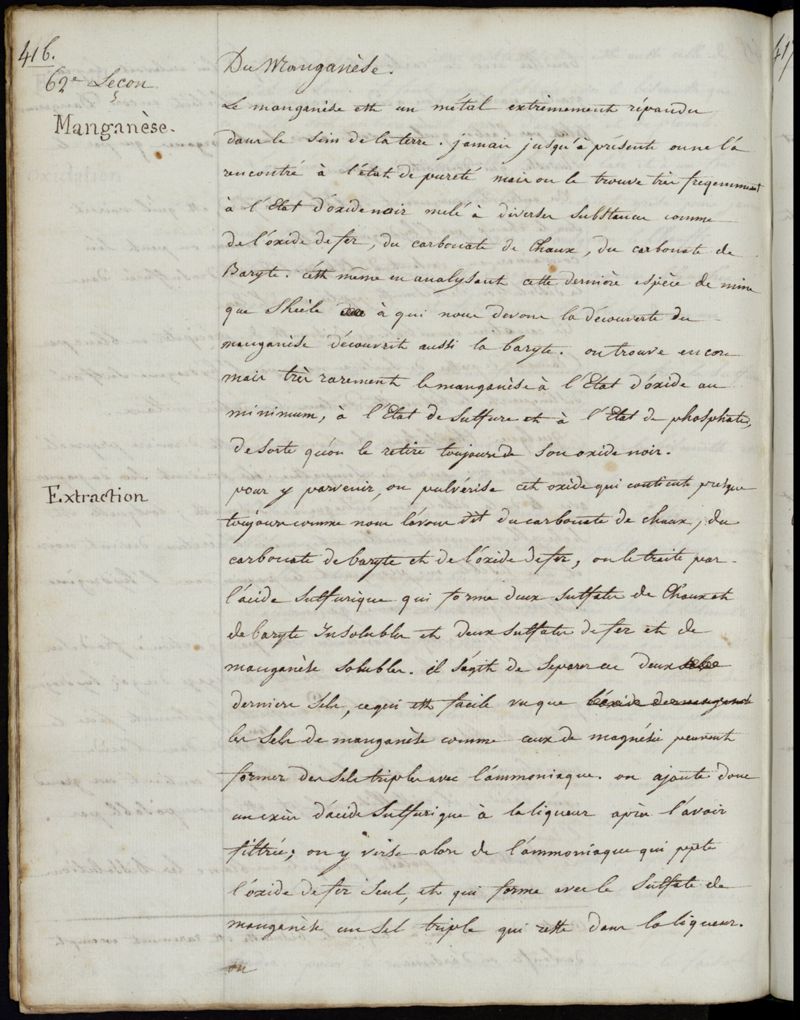 416.
62e Leçon
Manganèse.
Du Manganèse.
Le manganèse est un métal extrèmement répandu
dans le sein de la terre. jamais jusqu'à présent on ne l'a
rencontré à l'état de pureté mais on le trouve très freqemment
à l'Etat d'óxide noir mélé à diverses substances comme
de l'óxide de fer, du carbonate de Chaux, du carbonate de
Baryte. c'est même en analysant cette dernière espèce de mine
que Shéele à qui nous devons la découverte du
manganèse découvrit aussi la baryte. on trouve encore
mais très rarement le manganèse à l'Etat d'óxide au
minimum, à l'Etat de Sulfure et à l'Etat de phosphate,
de sorte qu'on le retire toujours de son oxide noir.
Extraction
pour y parvenir, on pulvérise cet oxide qui contient presque
toujours comme nous l'avons dit du carbonate de chaux, du
carbonate de baryte et de l'óxide de fer, on le traite par
l'acide Sulfurique qui forme deux Sulfates de Chaux et
de baryte Insolubles et deux Sulfates de fer et de
manganèse solubles. il s'agit de separer ces deux sels
derniers Sels, ce qui est facile vu que l'óxide de manganèse
les Sels de manganèse comme ceux de magnésie peuvent
former des Sels triples avec l'ammoniaque. on ajoute donc
un excès d'acide Sulfurique à la liqueur après l'avoir
filtrée; on y verse alors de l'ammoniaque qui ppte
l'óxide de fer Seul, et qui forme avec le Sulfate de
manganèse un Sel triple qui reste dans la liqueur.
on
417